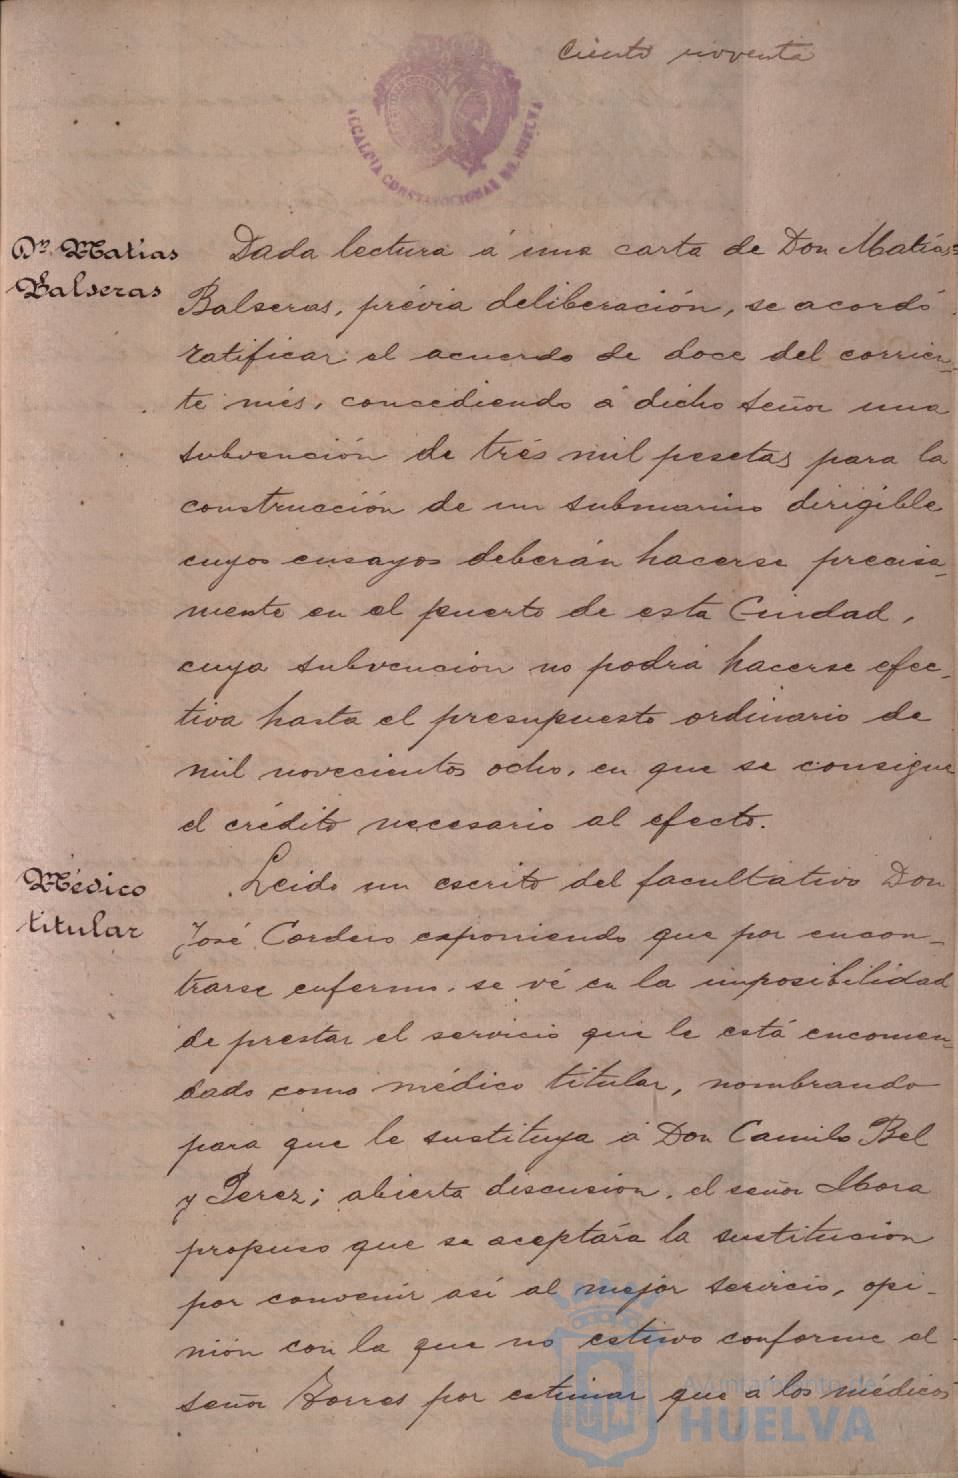 Ciento noventa
ALCALDIA CONSTITUCIONAL DE HUELVA
Dn. Matías
Balseras
Dada lectura á una carta de Don Matías
Balseras, prévia deliberación, se acordó
ratificar el acuerdo de doce del corrien-
te més, concediendo á dicho señor una
subvención de trés mil pesetas para la
construcción de un submarino dirigible
cuyos ensayos deberán hacerse precisa-
mente en el puerto de esta Ciudad,
cuya subvencion no podrá hacerse efec-
tiva hasta el presupuesto ordinario de
mil novecientos ocho, en que se consigue
el crédito necesario al efecto.
Médico
titular
Leido un escrito del facultativo Don
José Cordero exponiendo que por encon-
trarse enfermo, se vé en la imposibilidad
de prestar el servicio que le está encomen-
dado como médico titular, nombrando
para que le sustituya á Don Camilo Bel
y Perez; abierta discusion, el señor Mora
propuso que se aceptára la sustitucion
por convenir así al mejor servicio, opi-
nión con la que no estuvo conforme el
señor Torres por estimar que á los médicos
Ayuntamiento de
HUELVA